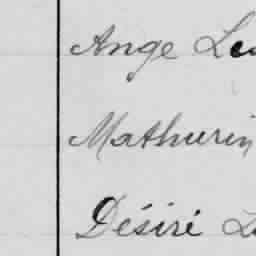 Ange Le
Mathurin
Désiré L